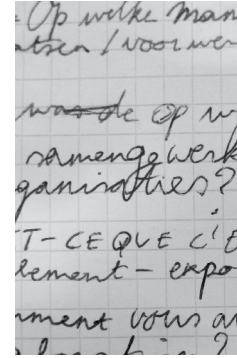 - Op welke man
atsen / voorwer
was de Op w
samengewerk
ganisaties?
T-CE QUE C'E
lement - expo
mment vous av